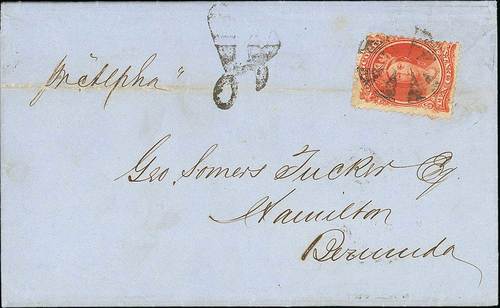 Pr "Alpha"
Geo. Somers Tucker Esq.
Hamilton
Bermuda